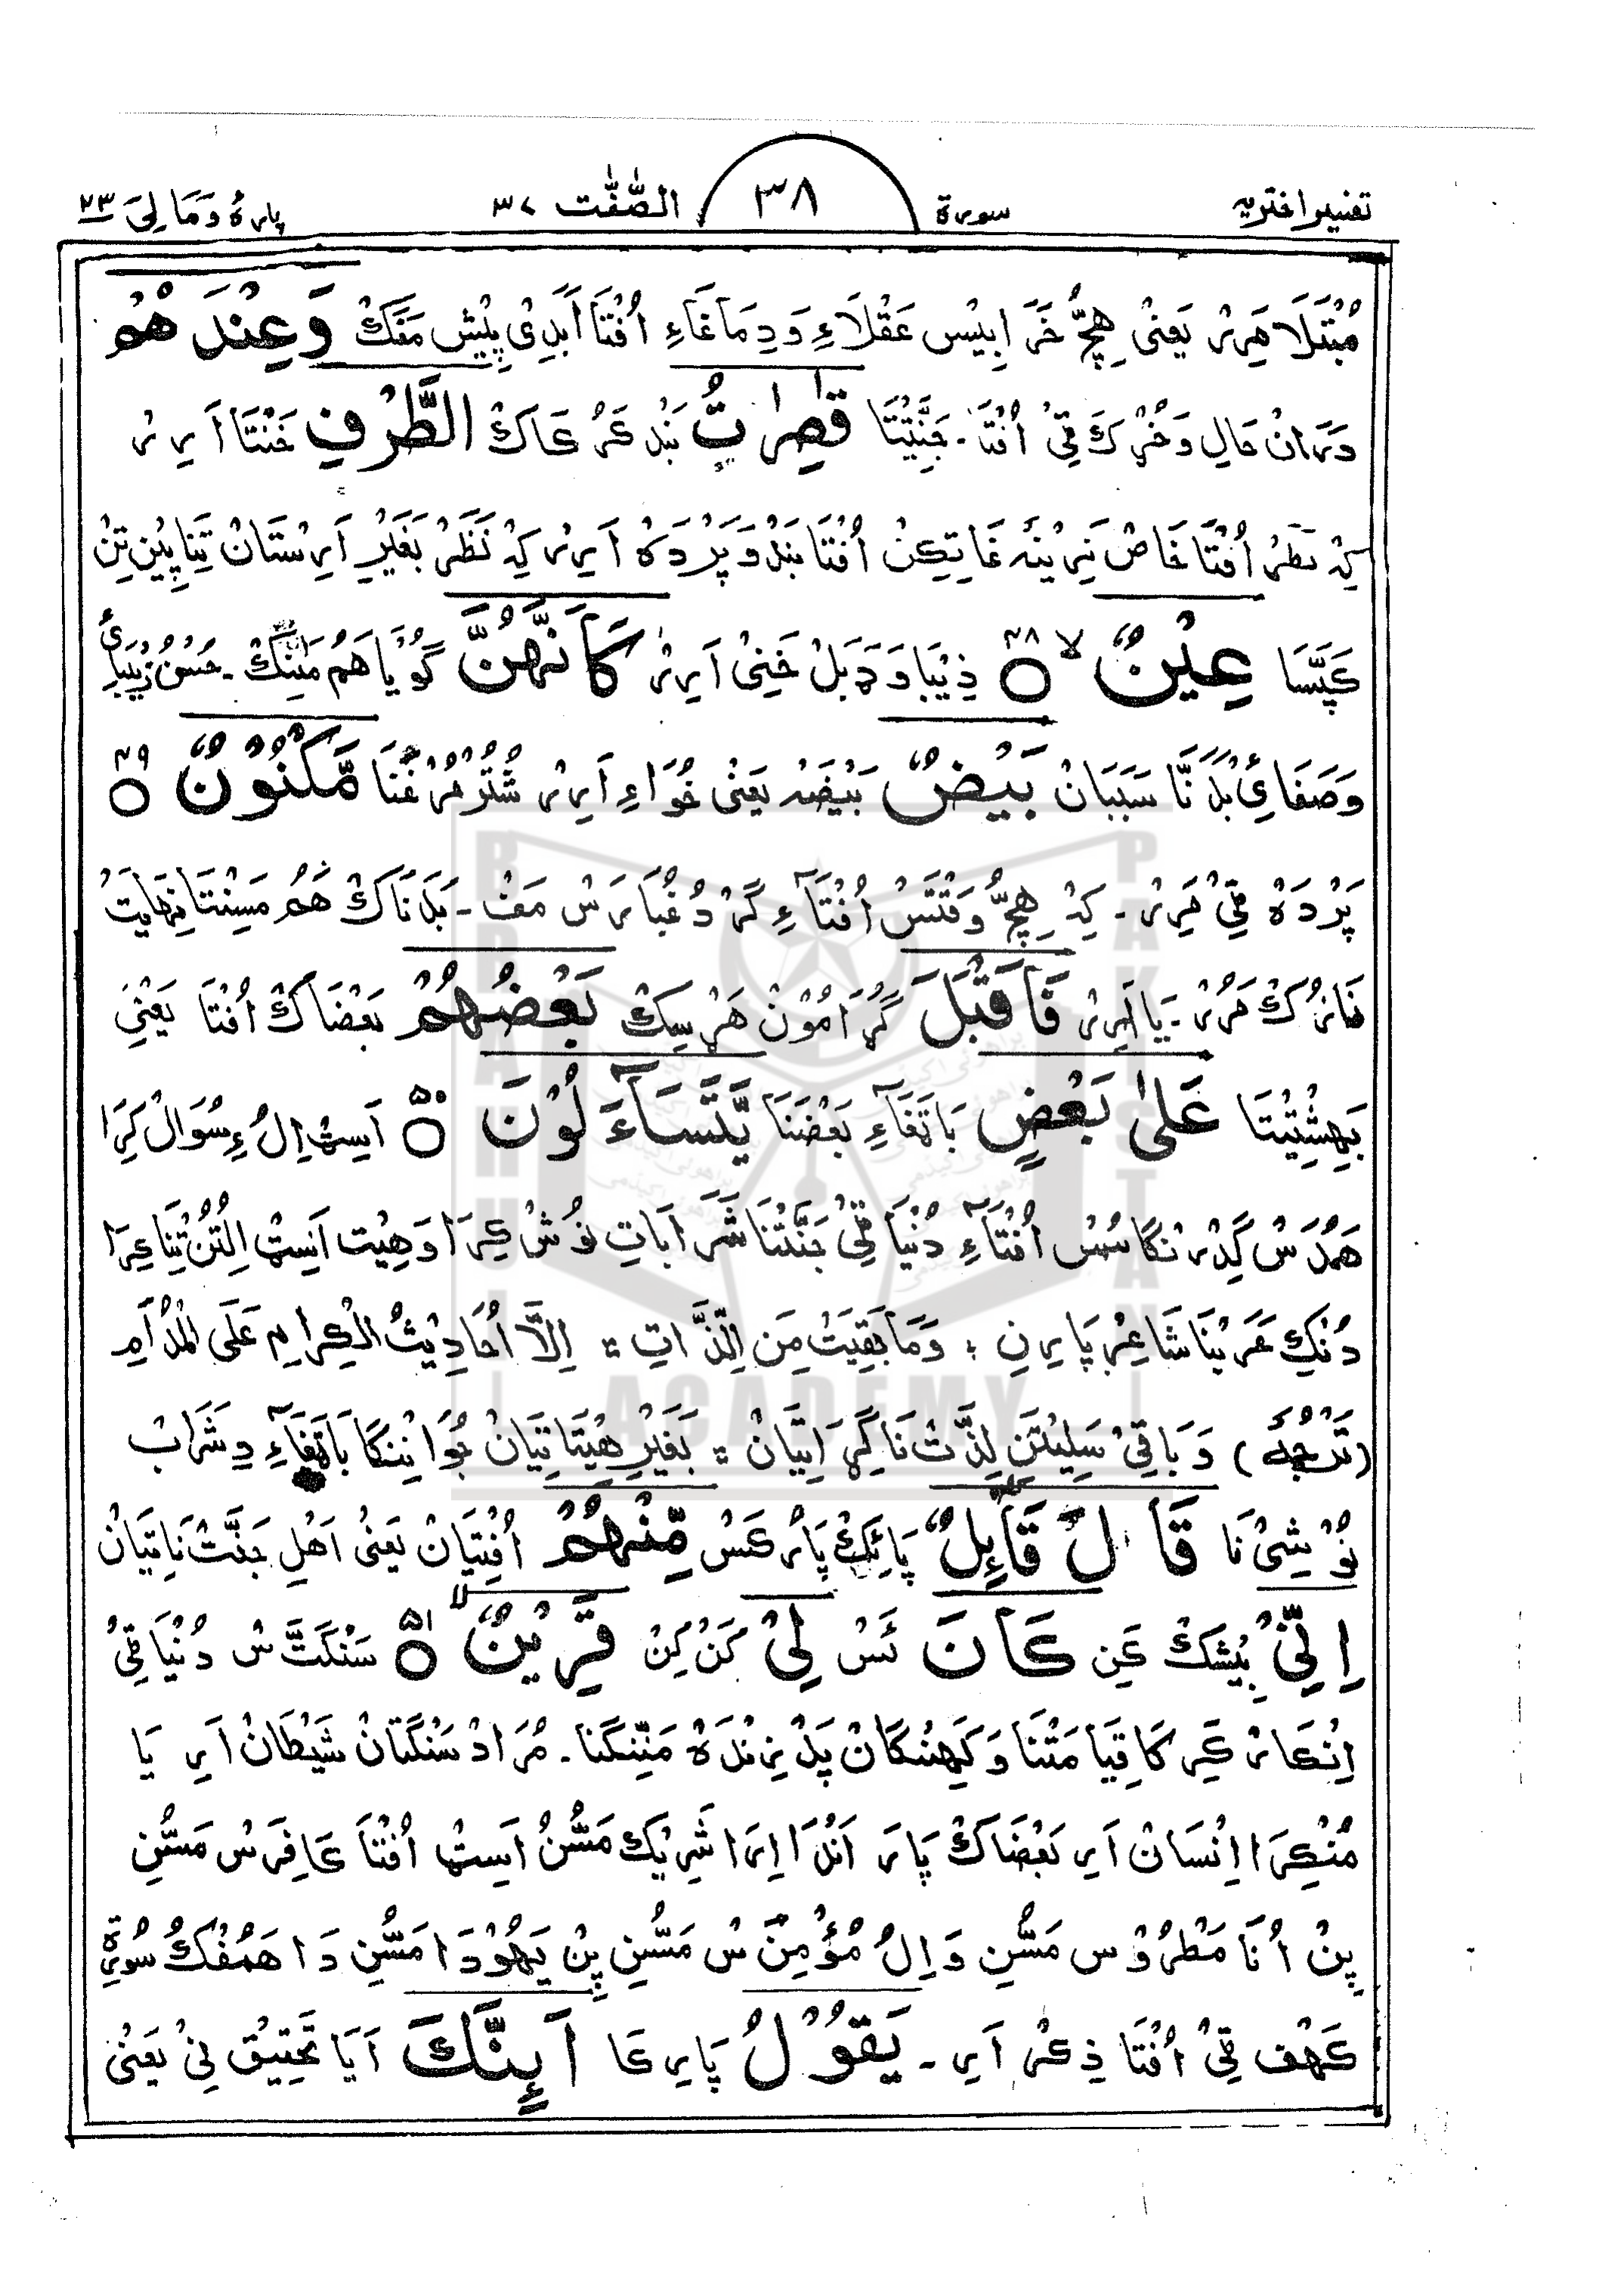 تفسیر اختریه سورة ٣٨ الصّٰفّٰت ٣٧ پاره وَمَا لِیَ ٢٣
مُبْتَلَا مَرِرْ یَعْنِیْ هِچّ خَرَابِیْس عَقْلَاءِ وَدِمَاغَاءِ اُفْتَا اَبَدِیْ پِیْش مَفَکْ وَعِنْدَهُمْ
دَرَانْ حَالِ وَخُرُکَ ٹِیْ اُفْتَا۔ جَنَّتِیْتَا قٰصِرٰتُ بَنْد کَرُکَاکْ الطَّرْفِ خَنْتَا اَرِرْ
کِہْ نَظَرْ اُفْتَا خَاصْ نَرِیْنَہ غَاتِکِنْ اُفْتَا بَنْد وَپَرْدَہْ اَرِرْ کِہْ نَظَرْ بَغَیْرِ اَرِسْتَانْ تِنَا پِیْن تِنْ
کَپَّسَا عِیْنٌ ٤٨ لا زِیْبَا وَدَبَلْ خَنِیْ اَرِرْ کَاَنَّهُنَّ گُوْیَا هَمْ مَنِنْکْ۔ حُسْن زِیْبَائِ
وَصَفَائِ بُدَنَّا سَبَبَانْ بَیْضٌ بَیْضَہ یَعْنِیْ خُوَاءِ اَرِرْ شُتُرْمُرْغَنَا مَّكْنُوْنٌ ٤٩
پَرْدَہ ٹِیْ مَرِرْ۔ کِہْ هِچّ وَقْتَسْ اُفْتَآءِ گَرْدُ غُبَارَسْ مَفْ۔ بَدَنَاکْ هَمْ مَسِنْتَا نِہَایَتْ
نَازُکْ مَرُرْ۔ یَا اَرِرْ فَاَقْبَلَ گُڑَامُوْنْ هَرْسِکْ بَعْضُهُمْ بَعْضَاکْ اُفْتَا یَعْنِیْ
بَهِشْتِیْتَا عَلٰی بَعْضٍ بَاتَغَآءِ بَعْضَنَا یَّتَسَآءَلُوْنَ ٥٠ اَسِٹ اِلُ ءِ سُوَالْ کِرَا
هَمْدَسْ گِدْرِنْگَاسُسْ اُفْتَآءِ دُنْیَا ٹِیْ جَنَّتْنَا شَرَابَاتِ نُوْشْ کِرَا وَهِیْت اَسِٹ اِلْتُنْ تِنَا کِرَا
دُنْکِ عَرَبْنَا شَاعِرْ پَارِنِ ؛ وَمَا بَقِیَتْ مِنَ الِّذَّاتِ ؞ اِلَّا اُحَادِیْثُ الْکِرَامِ عَلَی الْمُدَامِ
(تَرْجُمَه) وَبَاقِیْ سَلِیْتَنِ لِذَّتْ نَا گِڑَاتِیَانْ ؞ بَغَیْرِ هِیْتَاتِیَانْ جُوَانِنْگَا بَاتَغَآءِ دِ شَرَابْ
نُوْشِیْ نَا قَالَ قَآئِلٌ پَائِکْ پَارْکَسْ مِّنْهُمْ اُفْتِیَانْ یَعْنِیْ اَهْلِ جَنَّتْ نَاتِیَانْ
اِنِّیْ بِیْشَکْ کَنِ کَانَ ئَسْ لِیْ کَنْکِنْ قَرِیْنٌ ٥١ لا سَنْگَتَّسْ دُنْیَا ٹِیْ
اِنْکَارْ کَرِکَا قِیَامَتْنَا وَکَهِنْنگَانْ پَدْ زِنْدَہْ مَنِّنْگنَا۔ مُرَادْ سَنْگَتَانْ شَیْطَانْ اَرِ یَا
مُنْکِرَا اِنْسَانْ اَرِ بَعْضَاکْ پَارَ اَنْدَا اِرَا شَرِیْکْ مَسُّنْ اَسِٹ اُفْتَا کَافِرَسْ مَسُّنِ
پِنْ اُنَا مَطْرُوْس مَسُّنِ وَاِلُ مُؤْمِنَسْ مَسُّنِ پِنْ یَهُوْدَا مَسُّنِ دَا هَمْفْکْ سُوْرَۃِ
کَهْف ٹِیْ اُفْتَا ذِکْرْ اَرِ۔ یَقُوْلُ پَارِکَا اَئِنَّكَ اَیَا تَحْقِیْق نِیْ یَعْنِیْ
BRAHUI ACADEMY PAKISTAN